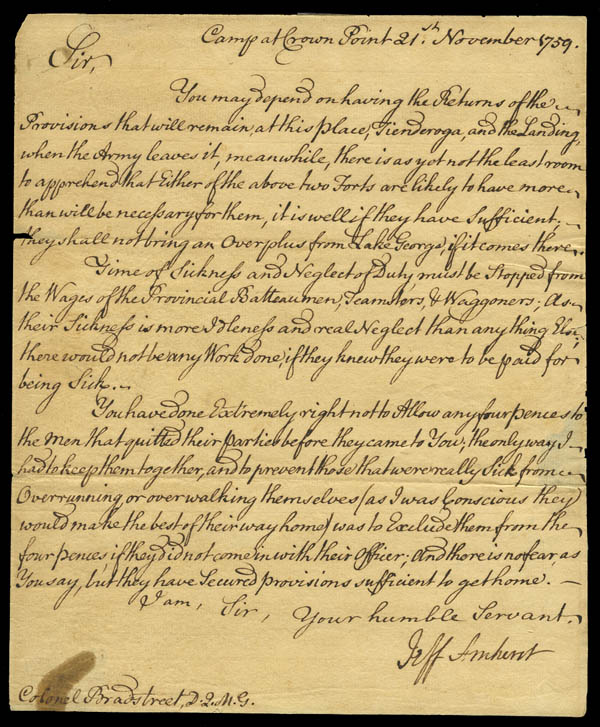 Camp at Crown Point 21st. November 1759.
Sir,
You may depend on having the Returns of the
Provisions that will remain, at this place, Tienderoga, and the Landing,
when the Army leaves it, meanwhile, there is as yet not the least room
to apprehend that Either of the above two Forts are likely to have more
than will be necessary for them, it is well if they have Sufficient.
they shall not bring an Overplus from Lake George, if it comes there.
Time of Sickness and Neglect of Duty, must be Stopped from
the Wages of the Provincial Batteaumen, Teamsters, & Waggoners; As
their Sickness is more Idleness and real Neglect than any thing Else;
there would not be any Work done, if they knew they were to be paid for
being Sick.
You have done Extremely right not to Allow any four pences to
the Men that quitted their parties before they came to You; the only way I
had to keep them together, and to prevent those that were really Sick from
Overrunning or over walking themselves (as I was Conscious they
would make the best of their way home) was to Exclude them from the
four pences, if they did not come in with their Officer; And there is no fear, as
You say, but they have Secured provisions sufficient to get home. —
I am, Sir, Your humble Servant.
Jeff Amherst
Colonel Bradstreet, D:2.M.G.